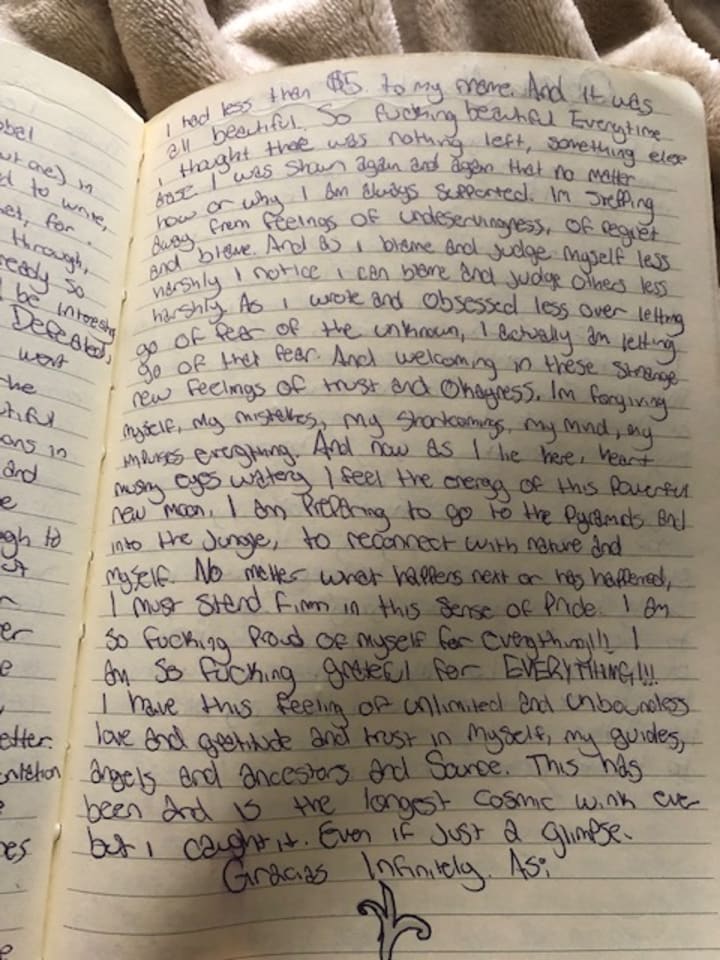 obel
out one) in
d to write,
et, for
through,
ready so
l be interesting
Defeated,
went
the
utiful
ons in
and
e
ugh to
ut
r
er
e
etter.
entation
e
pes
e
I had less than $5. to my name. And it was
all beautiful. So fucking beautiful Everytime
i thought there was nothing left, something else
arose I was shown again and again that no matter
how or why I am always supported. Im stepping
away from feelings of undeservingness, of regret
and blame. And as i blame and judge myself less
harshly I notice i can blame and judge others less
harshly. As I wrote and obsessed less over letting
go of fear of the unknown, I actually am letting
go of that fear. And welcoming in these strange
new feelings of trust and Okayness. Im forgiving
myself, my mistakes, my shortcomings, my mind, my
impulses everything. And now as I lie here, heart
mushy eyes watery I feel the energy of this Powerful
new moon. I am Preparing to go to the Pyramids and
into the Jungle, to reconnect with nature and
myself. No matter what happens next or has happened,
I must stand firm in this sense of Pride. I am
so fucking Proud of myself for everything!!! I
am so fucking grateful for EVERYTHING!!!
I have this feeling of unlimited and unboundless
love and gratitude and trust in myself, my guides,
angels and ancestors and Source. This has
been and is the longest cosmic wink ever
but i caught it. Even if just a glimpse.
Gracias Infinitely. As;